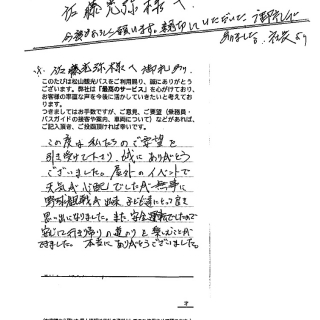 佐藤光弥様へ
お読みになられるよう願います。親切にしていただいた御礼が
ありました。
佐藤光弥様へ 御礼
このたびは松山観光バスをご利用賜り、誠にありがとうございます。弊社は「最高のサービス」を心がけており、
お客様の率直な声を今後に活かしていきたいと考えております。
つきましてはお手数ですが、ご意見、ご要望（乗務員・
バスガイドの接客や案内、車両について）などがあれば、
ご記入頂き、ご投函頂ければ幸いです。
この度は私たちのご要望を
引き受けて下さり、誠にありがとう
ございました。屋外のイベントで
天気が心配でしたが無事に
野球観戦が出来、子ども達にとって良き
思い出になりました。また、安全運転でしたので
安心して行き帰りの道のりを楽しむことが
できました。本当にありがとうございました。